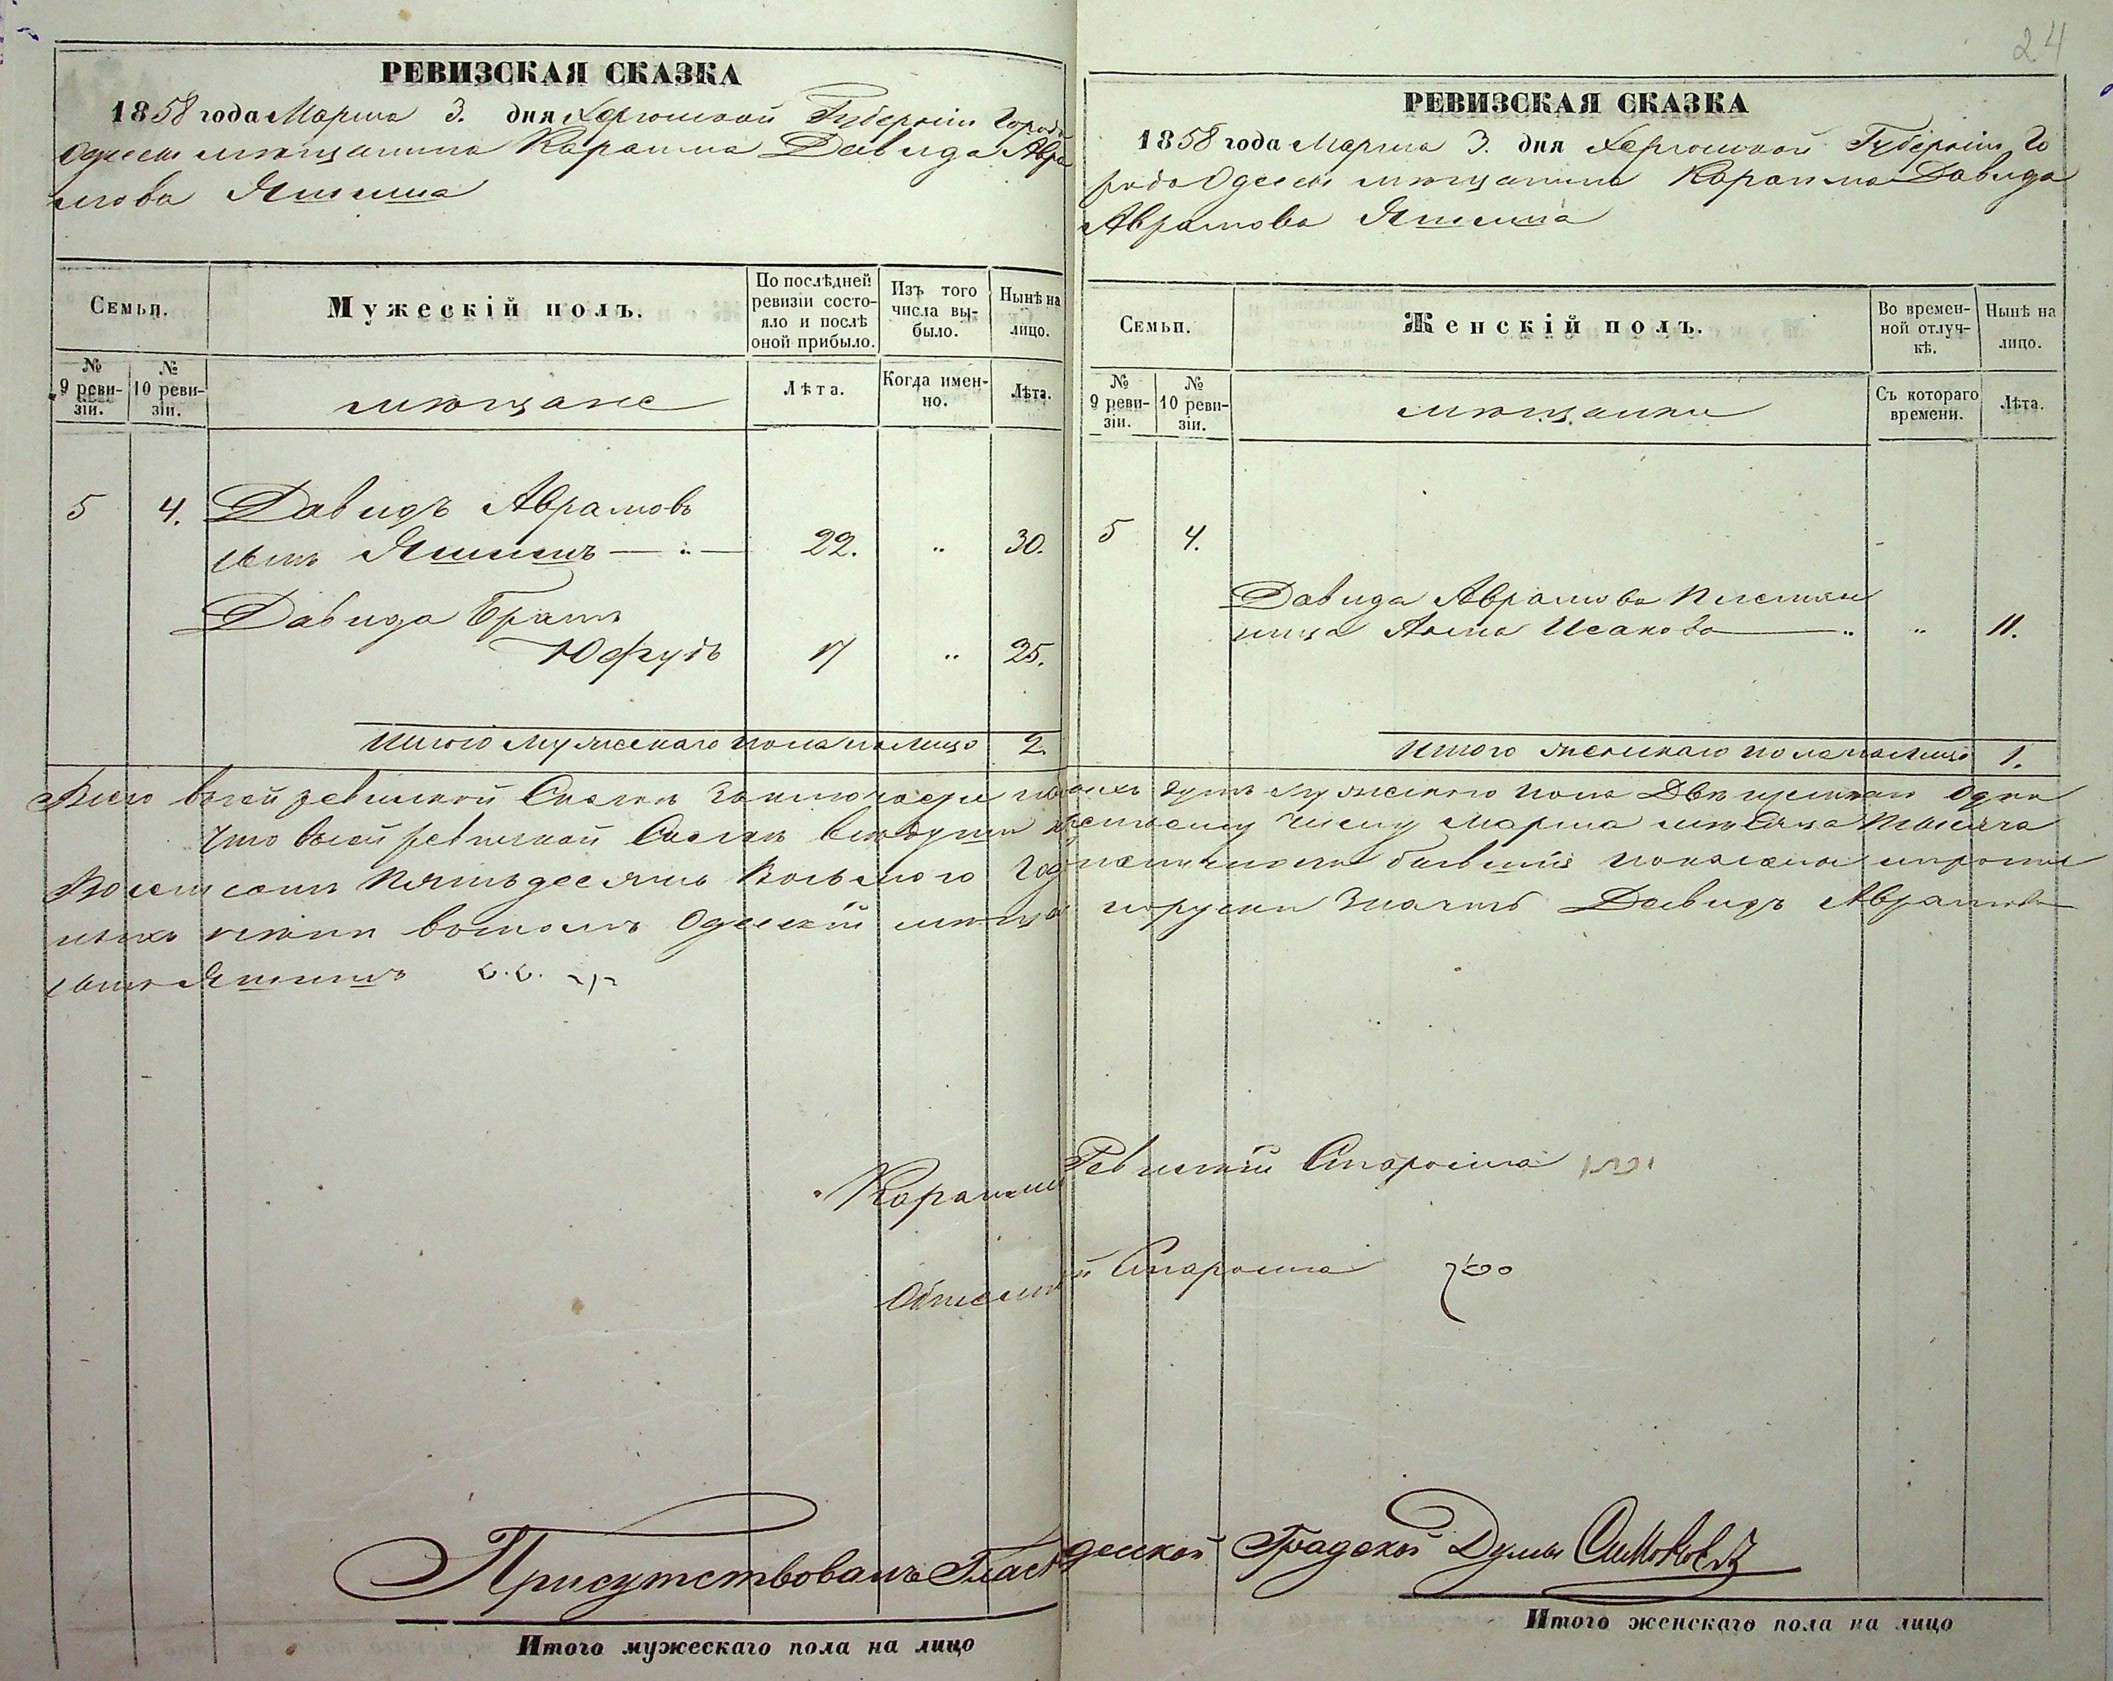 РЕВИЗСКАЯ СКАЗКА
1858 года Марта 3. дня Херсонской Губерніи Города
Одессы мѣщанина Караима Давида Авра
мова Яшиша
Семьи.
Мужескій полъ.
По послѣдней ревизіи состояло и послѣ оной прибыло.
Изъ того числа выбыло.
Нынѣ на лицо.
№ 9 ревизіи.
№ 10 ревизіи.
мѣщане
Лѣта.
Когда именно.
Лѣта.
5 4. Давидъ Аврамовъ
сынъ Яшишъ — 22. „ 30.
Давида Братъ
Юфудъ 17 „ 25.
Итого мужескаго пола на лицо 2.
24
РЕВИЗСКАЯ СКАЗКА
1858 года Марта 3. дня Херсонской Губерніи Го
рода Одессы мѣщанина Караима Давида
Аврамова Яшиша
Семьи.
Женскій полъ.
Во временной отлучкѣ.
Нынѣ на лицо.
№ 9 ревизіи.
№ 10 ревизіи.
мѣщанки
Съ котораго времени.
Лѣта.
5 4.
Давида Аврамова племян
ница Анна Исакова — „ 11.
Итого женскаго пола на лицо 1.
Всего въ сей ревизской Сказкѣ заключается душъ мужескаго пола Двѣ женскаго Одна
Что въ сей ревизской Сказкѣ всѣ души къ третьему числу Марта мѣсяца тысяча
Восемьсотъ пятьдесятъ Восьмого Года на лицо бывшія показаны и прописныхъ
нѣтъ въ томъ Одесскій мѣщанинъ Давидъ Аврамовъ
сынъ Яшишъ
Караимскій Ревизскій Староста
Староста
Присутствовалъ Гласный Одесской Градской Думы Симоновъ
Итого мужескаго пола на лицо
Итого женскаго пола на лицо